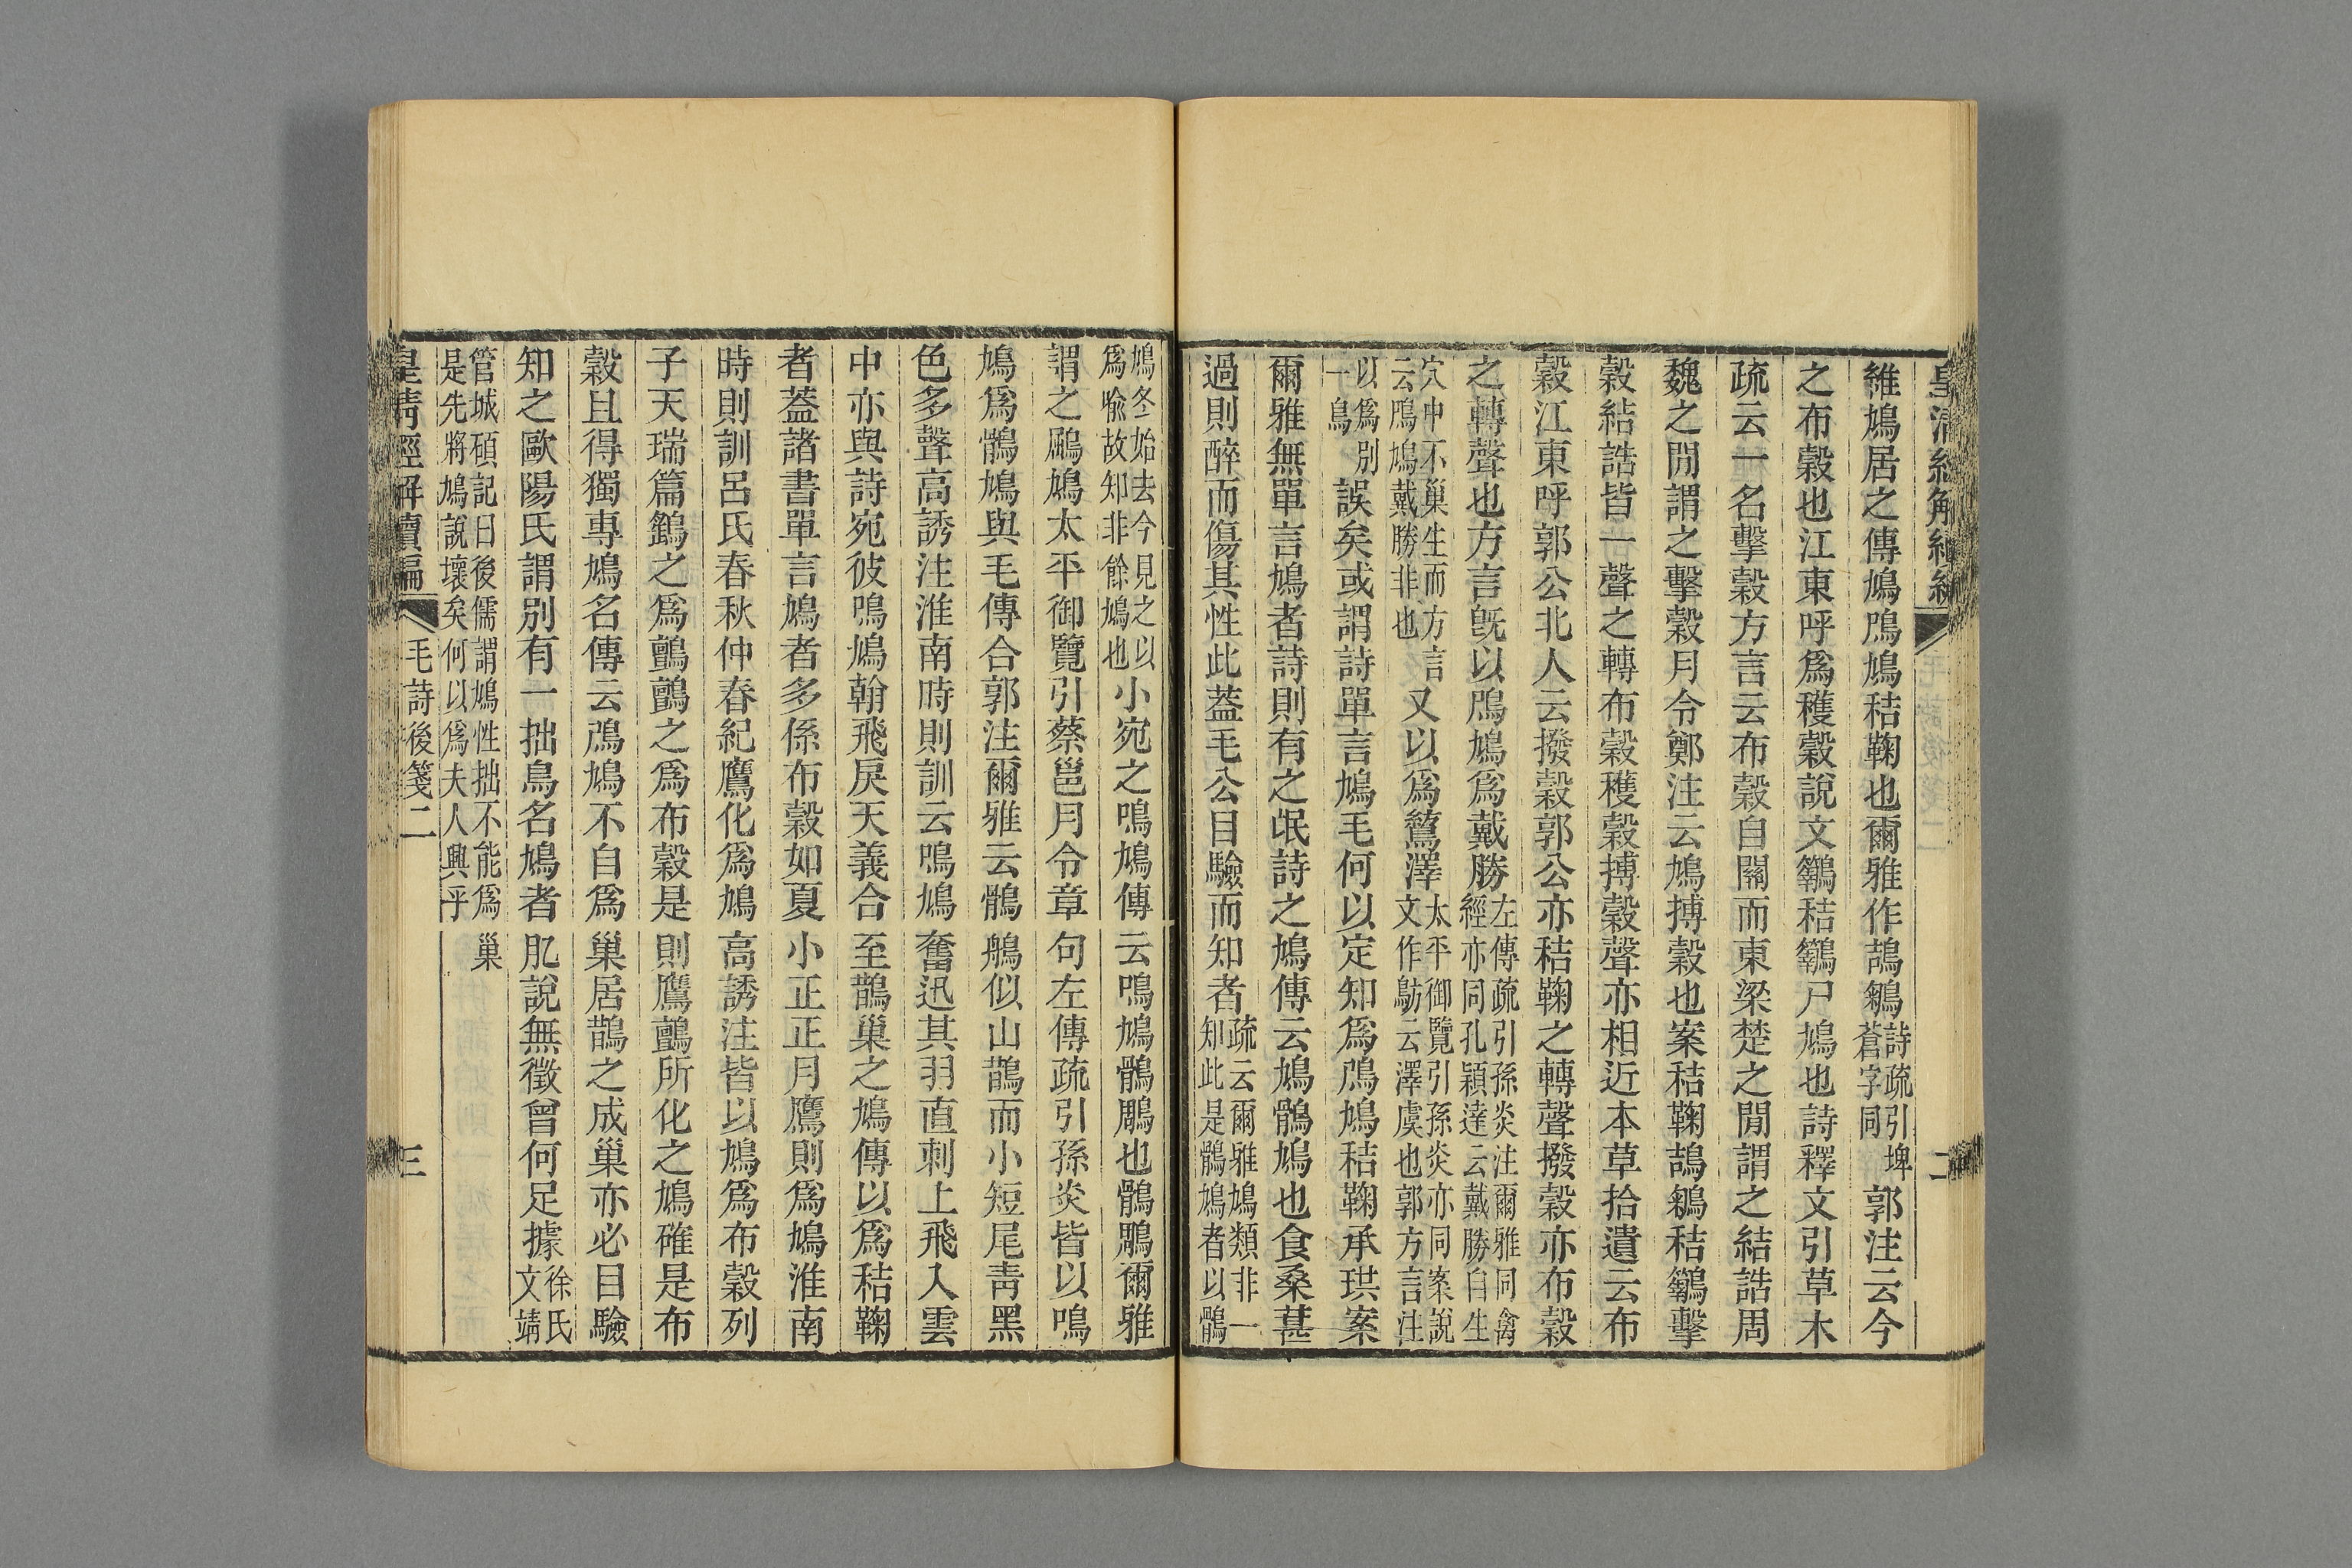 維鳩居之傳鳩鳲鳩秸鞠也爾雅作鴶鵴詩疏引埤蒼字同郭注云今
之布穀也江東呼爲穫穀說文䳢秸䳢尸鳩也詩釋文引草木
疏云一名擊穀方言云布穀自關而東梁楚之閒謂之結誥周
魏之閒謂之擊穀月令鄭注云鳩搏穀也案秸鞠鴶鵴秸䳢擊
穀結誥皆一聲之轉布穀穫穀搏穀聲亦相近本草拾遺云布
穀江東呼郭公北人云撥穀郭公亦秸鞠之轉聲撥穀亦布穀
之轉聲也方言旣以鳲鳩爲戴勝左傳疏引孫炎注爾雅同禽經亦同孔穎達云戴勝自生
穴中不巢生而方言云鳲鳩戴勝非也又以爲鶭澤太平御覽引孫炎亦同案說文作鴋云澤虞也郭方言注
以爲別一鳥誤矣或謂詩單言鳩毛何以定知爲鳲鳩秸鞠承珙案
爾雅無單言鳩者詩則有之氓詩之鳩傳云鳩鶻鳩也食桑葚
過則醉而傷其性此蓋毛公目驗而知者疏云爾雅鳩類非一知此是鶻鳩者以鶻
鳩冬始去今見之以爲喻故知非餘鳩也小宛之鳴鳩傳云鳴鳩鶻鵰也鶻鵰爾雅
謂之鶌鳩太平御覽引蔡邕月令章句左傳疏引孫炎皆以鳴
鳩爲鶻鳩與毛傳合郭注爾雅云鶻鵃似山鵲而小短尾靑黑
色多聲高誘注淮南時則訓云鳴鳩奮迅其羽直刺上飛入雲
中亦與詩宛彼鳴鳩翰飛戾天義合至鵲巢之鳩傳以爲秸鞠
者蓋諸書單言鳩者多係布穀如夏小正正月鷹則爲鳩淮南
時則訓呂氏春秋仲春紀鷹化爲鳩高誘注皆以鳩爲布穀列
子天瑞篇鷂之爲鸇鸇之爲布穀是則鷹鸇所化之鳩確是布
穀且得獨專鳩名傳云鳲鳩不自爲巢居鵲之成巢亦必目驗
知之歐陽氏謂別有一拙鳥名鳩者肊說無徵曾何足據徐氏文靖
管城碩記曰後儒謂鳩性拙不能爲巢是先將鳩說壞矣何以爲夫人興乎
皇淸經解續編 毛詩後箋二 三